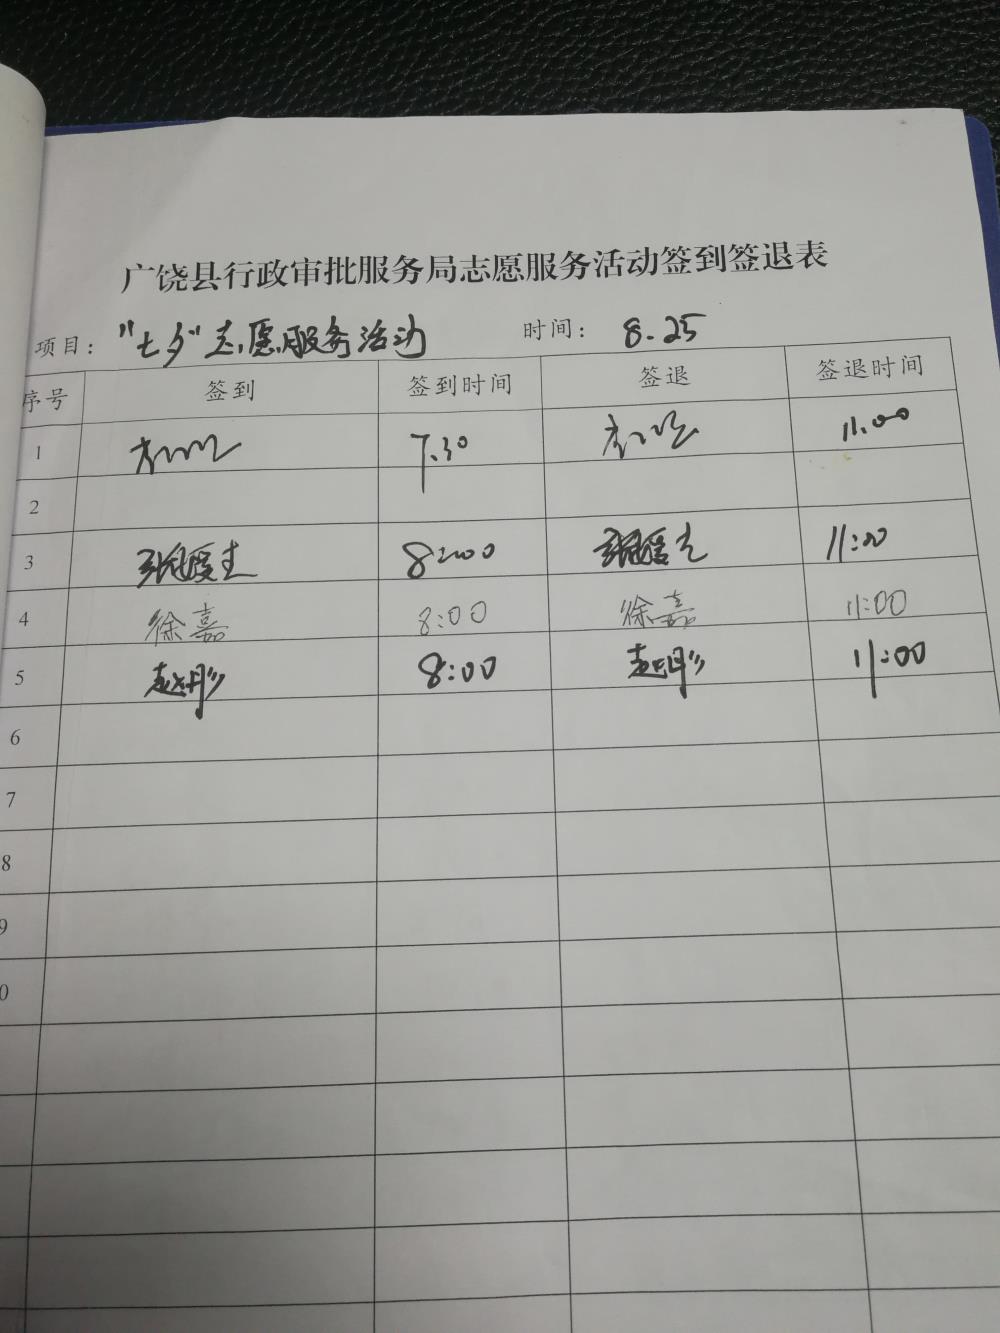 广饶县行政审批服务局志愿服务活动签到签退表
项目： "七夕"志愿服务活动 时间： 8.25
序号 签到 签到时间 签退 签退时间
1 7.30 11.00
2
3 8:00 11:00
4 徐嘉 8:00 徐嘉 11:00
5 赵彤 8:00 赵彤 11:00
6
7
8
9
0